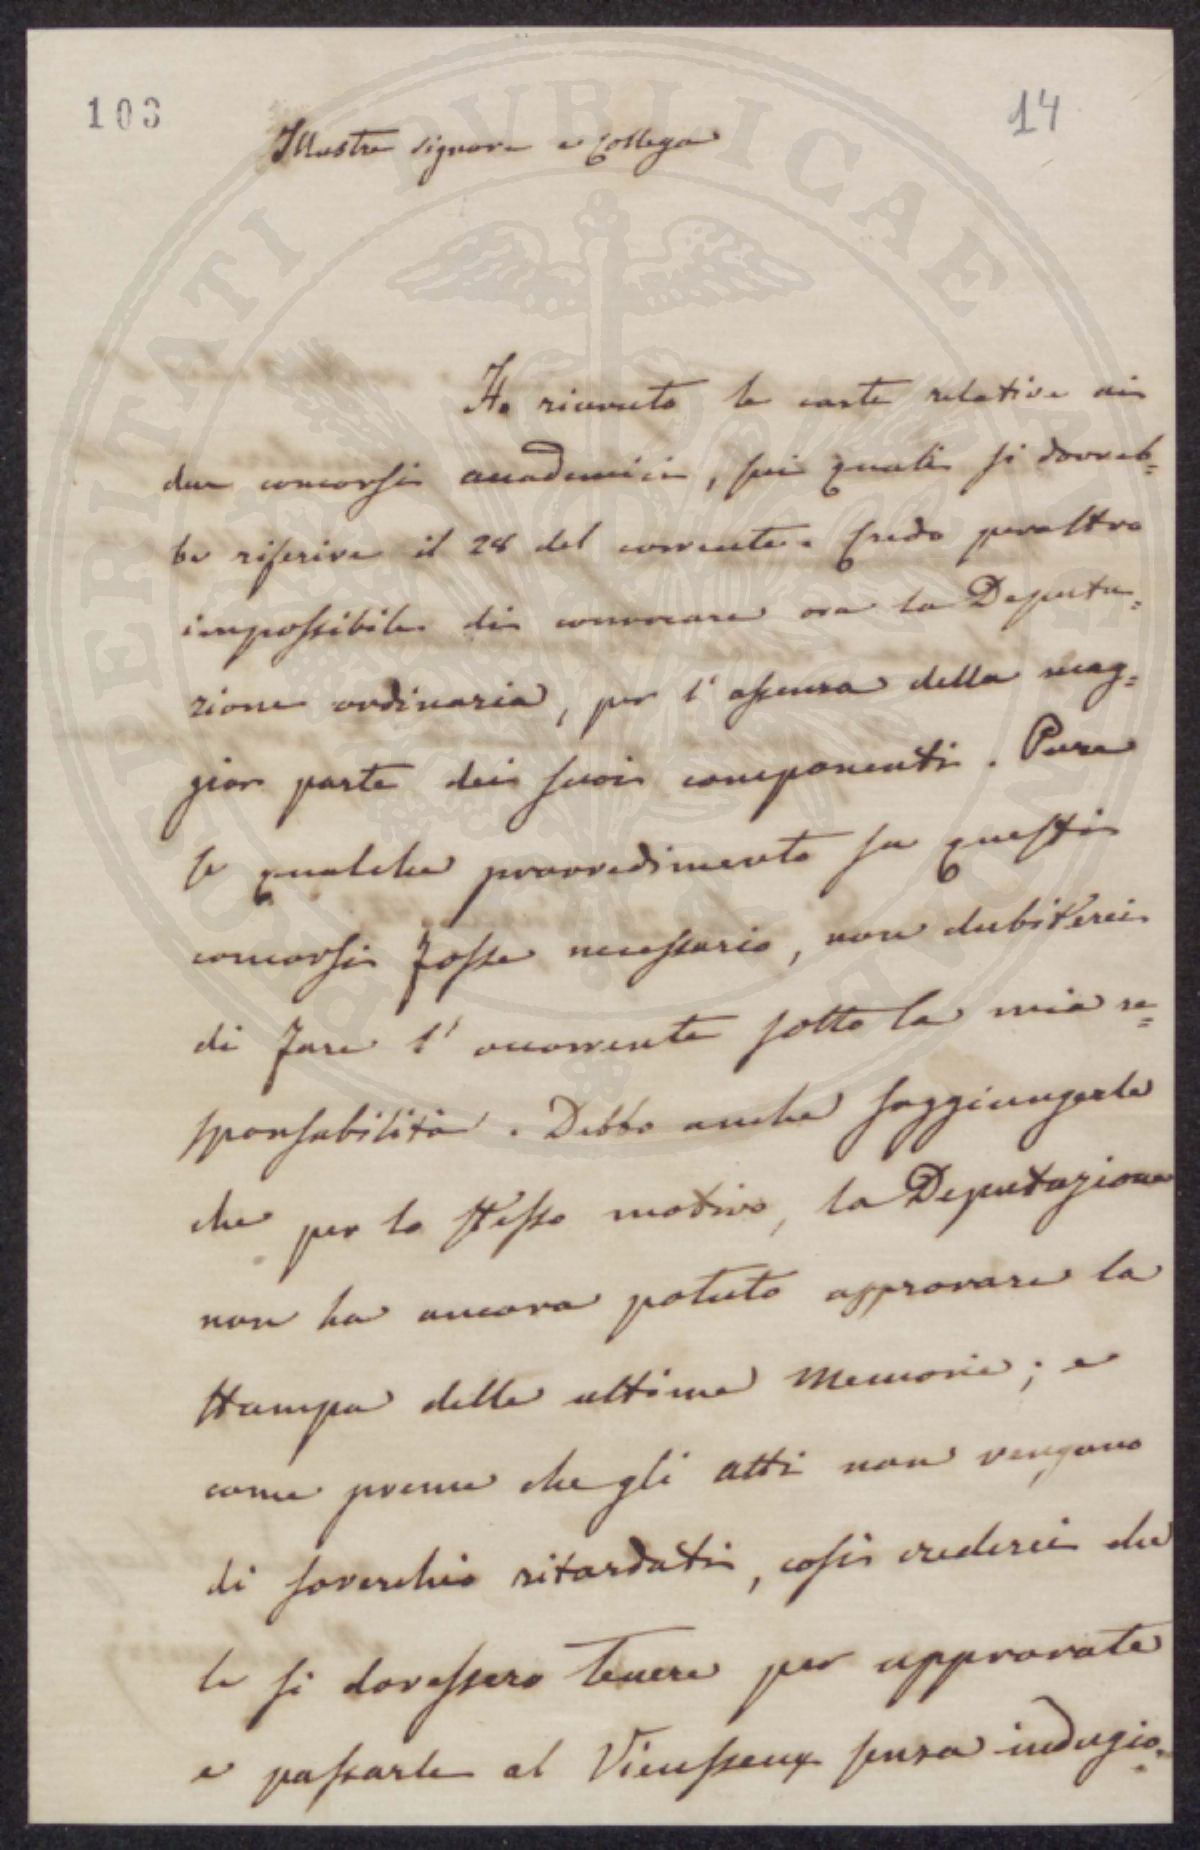 103
14
Illustre signore e Collega
Ho ricevuto le carte relative ai
due concorsi accademici, sui quali si dovreb=
be riferire il 28 del corrente. Credo peraltro
impossibile di convocare ora la Deputa=
zione ordinaria, per l'assenza della mag=
gior parte dei suoi componenti. Pure
se qualche provvedimento su questi
concorsi fosse necessario, non dubiterei
di fare l'occorrente sotto la mia re=
sponsabilità. Debbo anche soggiungerle
che per lo stesso motivo, la Deputazione
non ha ancora potuto approvare la
stampa delle ultime Memorie; e
come preme che gli atti non vengano
di soverchio ritardati, così crederei che
le si dovessero tenere per approvate
e passarle al Vieusseux senza indugio.
PROSPERITATI PUBLICAE AUGENDAE